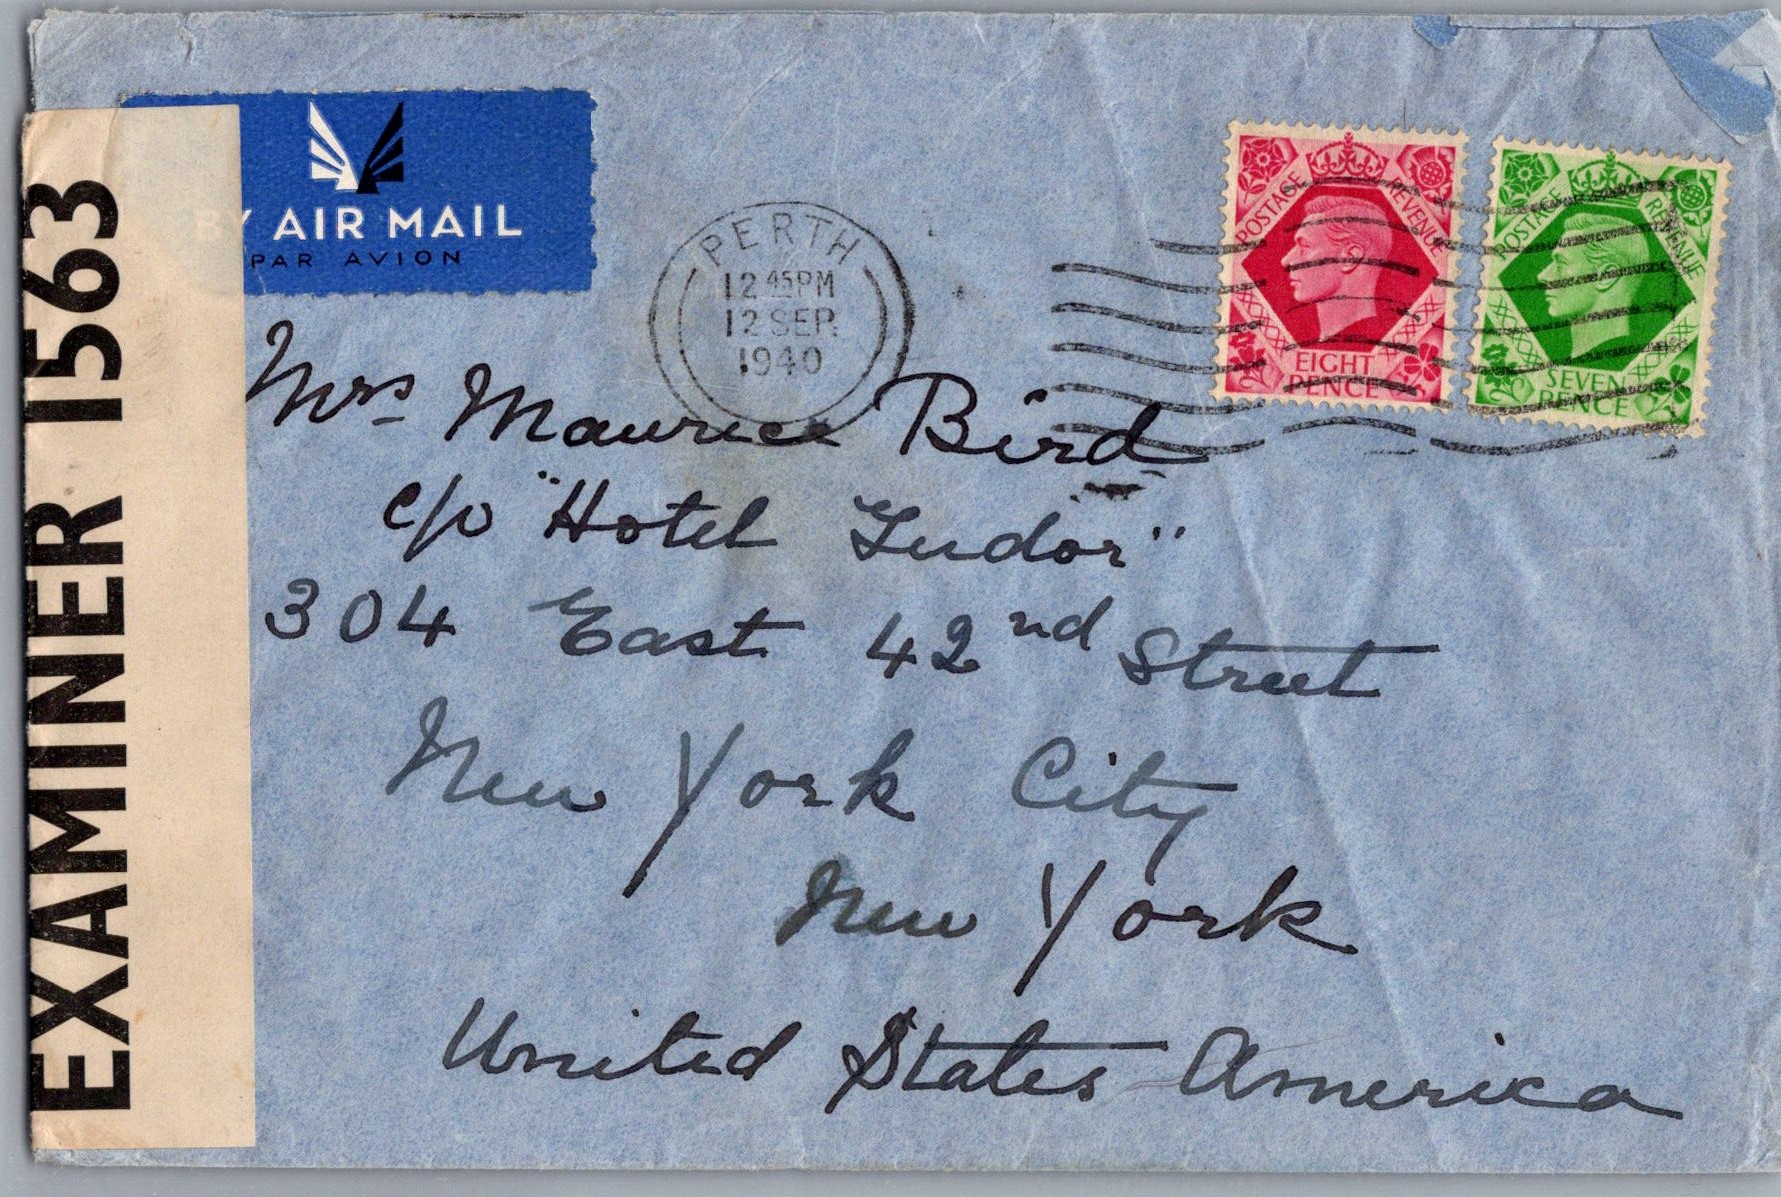 EXAMINER 1563
BY AIR MAIL
PAR AVION
PERTH
12 45PM
12 SEP
1940
POSTAGE REVENUE
EIGHT
PENCE
POSTAGE REVENUE
SEVEN
PENCE
Mrs Maurice Bird
c/o "Hotel Tudor"
304 East 42nd Street
New York City
New York
United States America